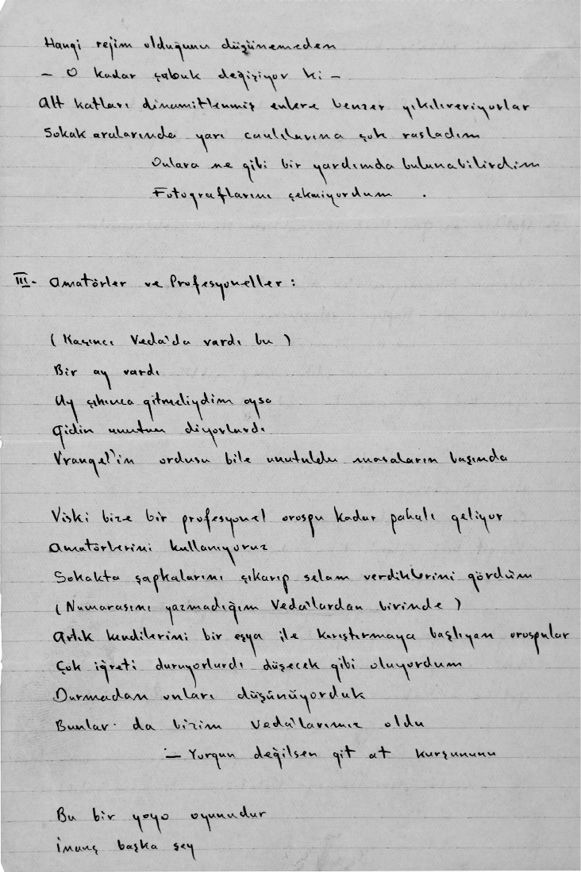 Hangi rejim olduğunu düşünemeden
- O kadar çabuk değişiyor ki -
Alt katları dinamitlenmiş evlere benzer yıkılıveriyorlar
Sokak aralarında yarı canlılarına çok rasladım
Onlara ne gibi bir yardımda bulunabilirdim
Fotograflarını çekmiyordum .
III- Amatörler ve Profesyoneller :
( Kaçıncı Veda'da vardı bu )
Bir ay vardı
Ay çıkınca gitmeliydim oysa
Gidin unutun diyorlardı
Vrangel'in ordusu bile unutuldu masaların başında
Viski bize bir profesyonel orospu kadar pahalı geliyor
Amatörlerini kullanıyoruz
Sokakta şapkalarını çıkarıp selam verdiklerini gördüm
( Numarasını yazmadığım Veda'lardan birinde )
Artık kendilerini bir eşya ile karıştırmaya başlıyan orospular
Çok iğreti duruyorlardı düşecek gibi oluyordum
Durmadan onları düşünüyorduk
Bunlar da bizim Veda'larımız oldu
- Yorgun değilsen git at kurşununu
Bu bir yoyo oyunudur
İnanç başka şey